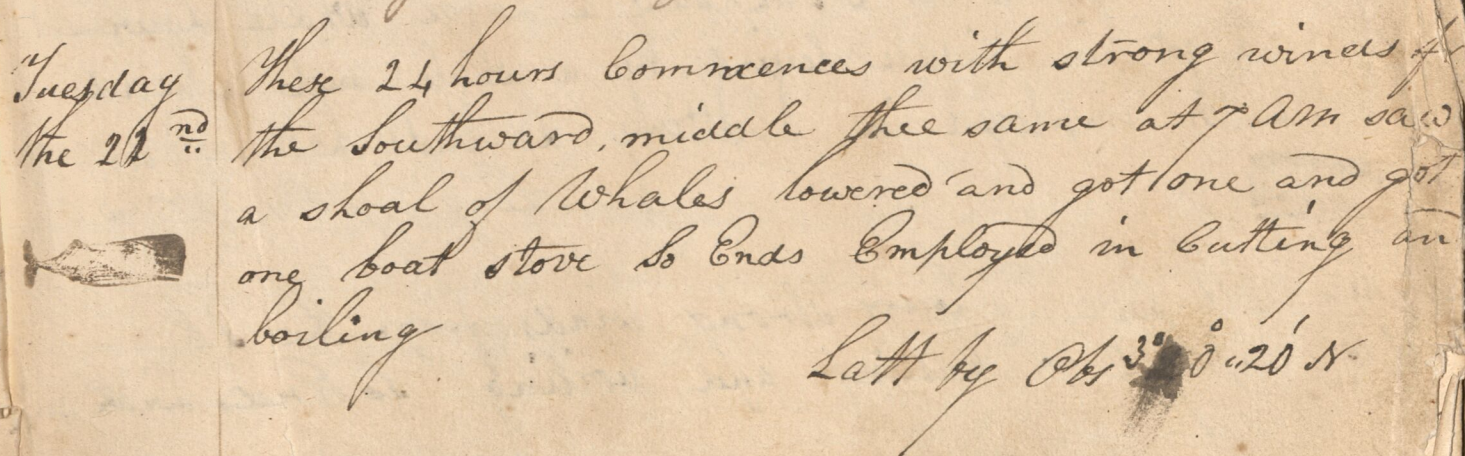 Tuesday
the 22nd
These 24 hours Commences with strong winds fr
the Southward, middle thee same at 7 Am saw
a shoal of Whales lowered and got one and got
one boat stove So Ends Employed in Cutting an
boiling
Latt by Obs 0°"20' N